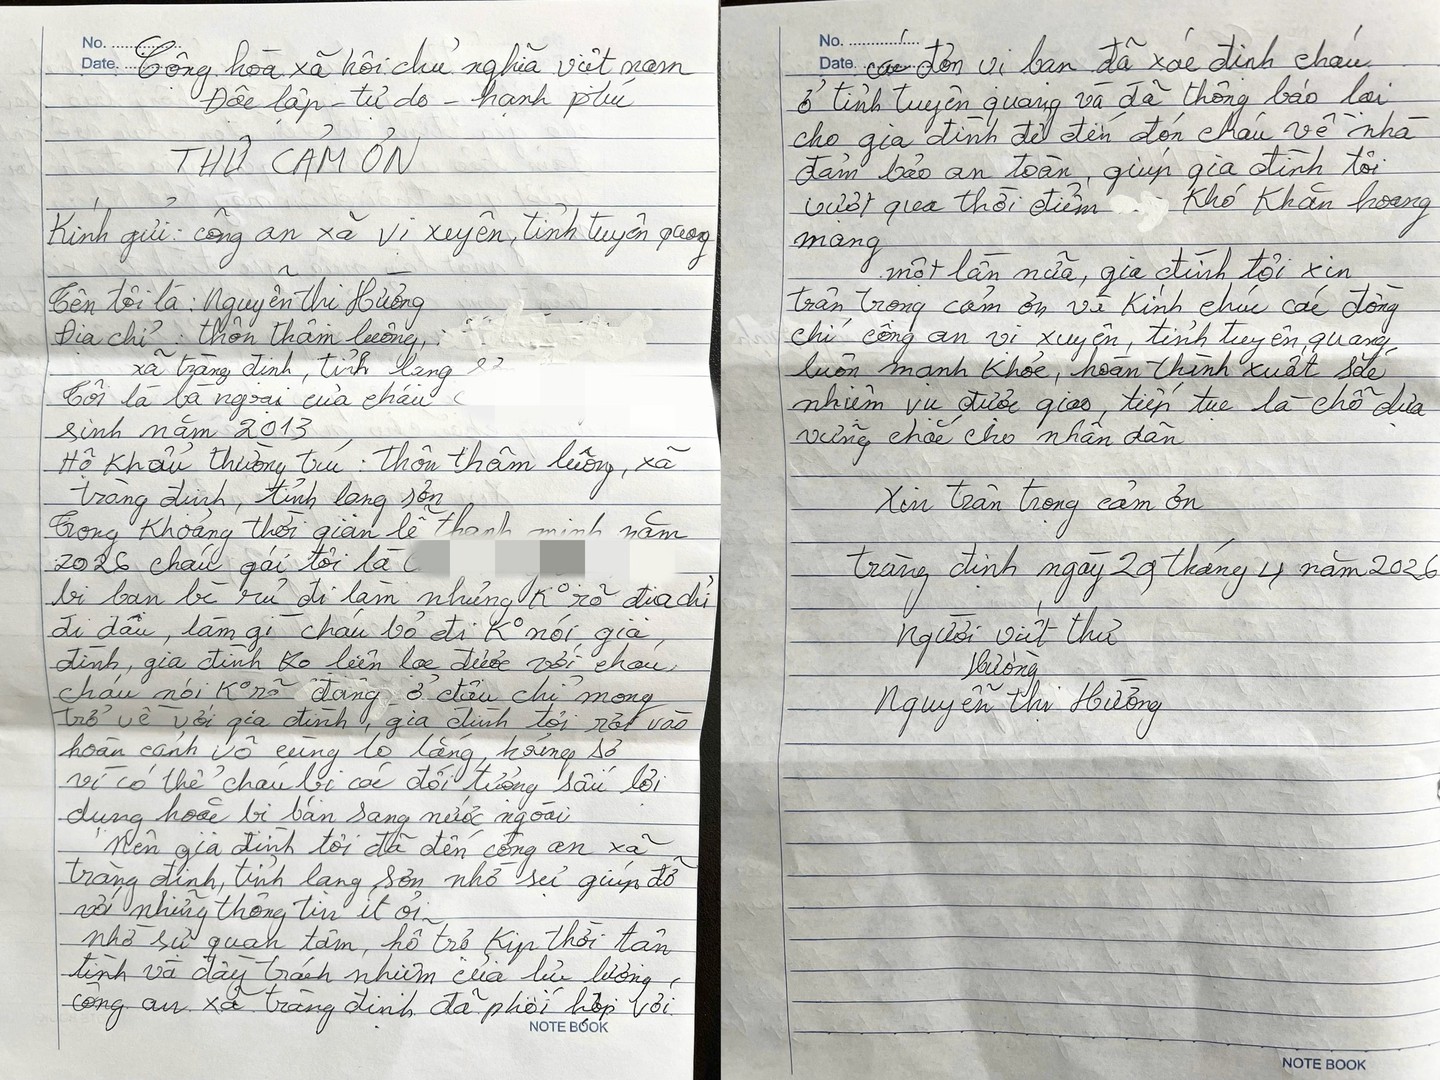 No. ................
Date. ...
Cộng hòa xã hôi chủ nghĩa việt nam
Đôc lập - tự do - hạnh phú
THƯ CẢM ƠN
Kính gửi: công an xã vị xuyên, tỉnh tuyên quang
Tên tôi là: Nguyễn thị Hường
Địa chỉ: thôn thâm luông,
xã tràng định, tỉnh lạng
Tôi là bà ngoại của cháu
sinh năm 2013
Hộ Khẩu thường trú: thôn thâm luông, xã
tràng định, tỉnh lạng sơn
Trong Khoảng thời gian lễ thanh minh năm
2026 cháu gái tôi là
bị bạn bè rủ đi làm nhưng Kº rõ địa chỉ
đi đâu, làm gì cháu bỏ đi Kº nói gia
đình, gia đình Ko liên lạc được với cháu,
cháu nói Kº rõ đang ở đâu chỉ mong
trở về với gia đình, gia đình tôi rơi vào
hoàn cảnh vô cùng lo lắng, hoảng sợ
vì có thể cháu bị các đối tượng sấu lợi
dụng hoặc bị bán sang nước ngoài
Nên gia đình tôi đã đến công an xã
tràng định, tỉnh lạng sơn nhờ sự giúp đỡ
với những thông tin ít ỏi
nhờ sự quan tâm, hỗ trợ Kịp thời tân
tình và đầy trách nhiệm của lực lượng
công an xã tràng định đã phối hợp với
NOTE BOOK
No. ................
Date. các đơn vị bạn đã xác định cháu
ở tỉnh tuyên quang và đã thông báo lại
cho gia đình để đến đón cháu về nhà
đảm bảo an toàn, giúp gia đình tôi
vượt qua thời điểm Khó Khăn hoang
mang
một lần nữa, gia đình tôi xin
trân trọng cảm ơn và Kính chúc các đồng
chí công an vị xuyên, tỉnh tuyên quang
luôn mạnh Khỏe, hoàn thành xuất sắc
nhiệm vụ được giao, tiếp tục là chỗ dựa
vững chắc cho nhân dân
Xin trân trọng cảm ơn
tràng định ngày 29 tháng 4 năm 2026
Người viết thư
Hường
Nguyễn thị Hường
NOTE BOOK